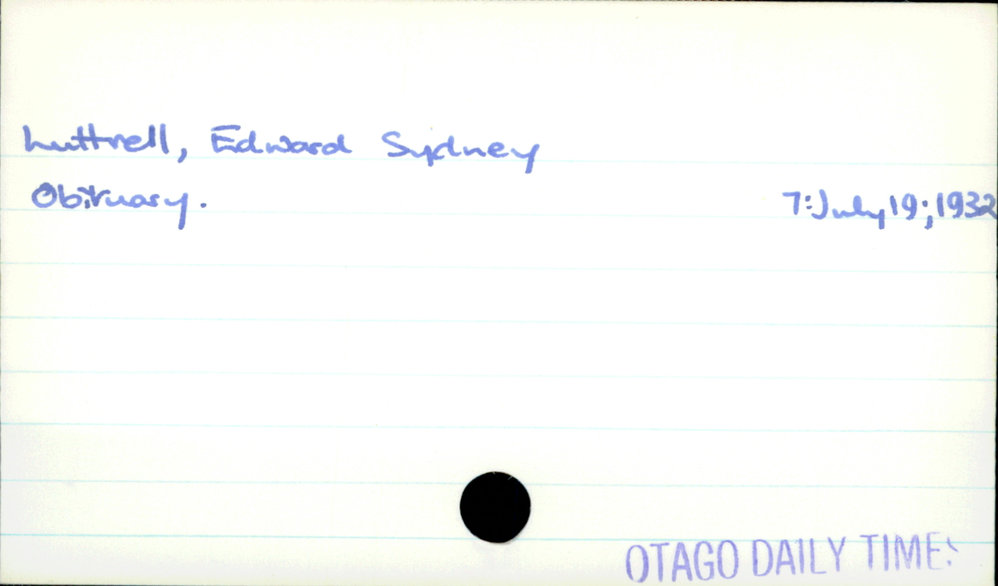 Luttrell, Edward Sydney
Obituary. 7:July 19;1932
OTAGO DAILY TIMES